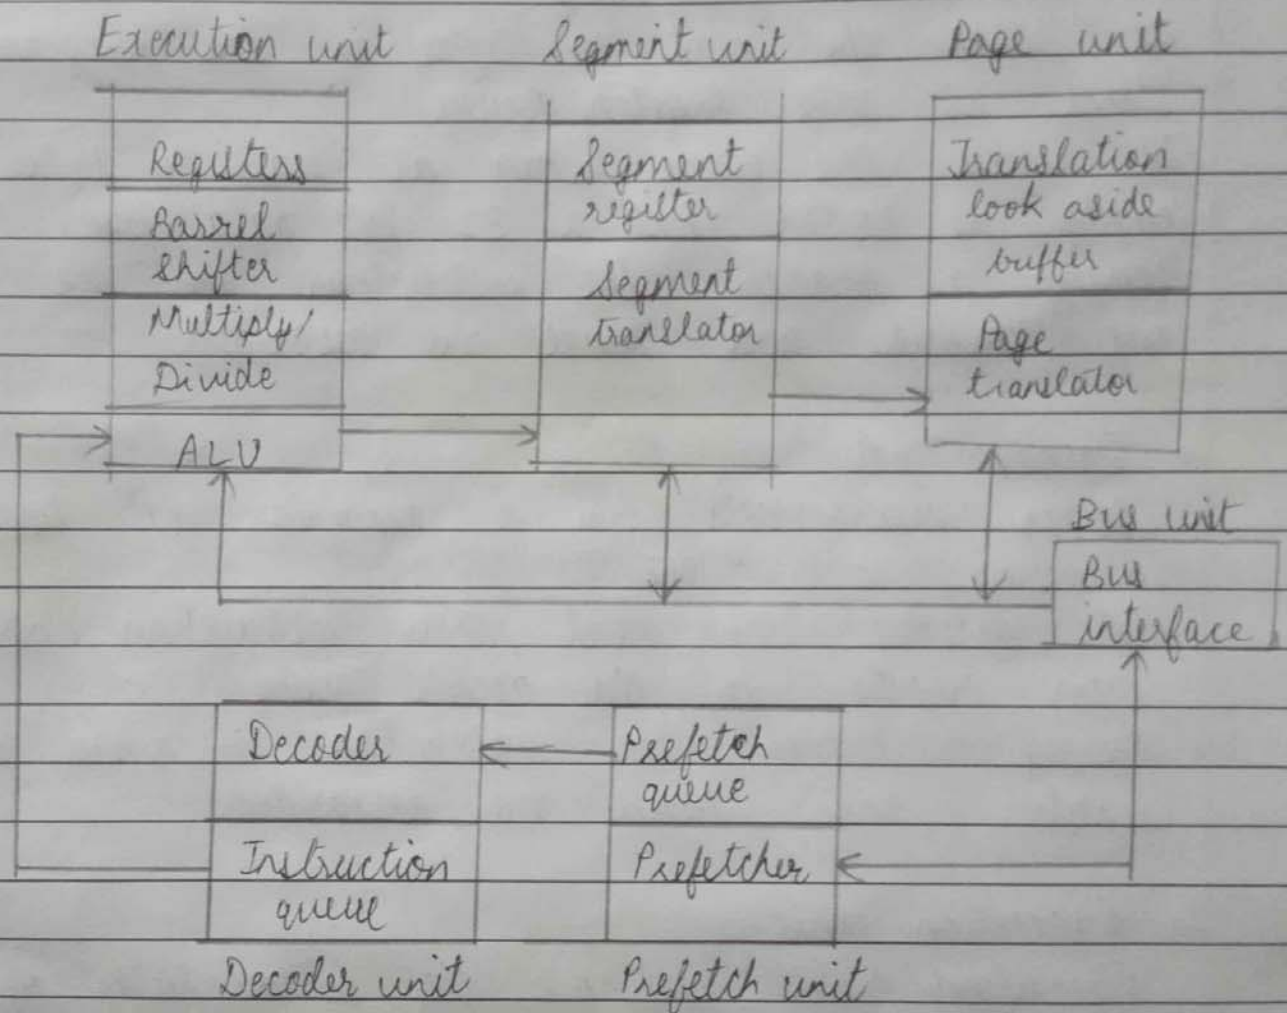 Execution unit
Segment unit
Page unit
Registers
Barrel
shifter
Multiply/
Divide
ALU
Segment
register
Segment
translator
Translation
look aside
buffer
Page
translator
Bus unit
Bus
interface
Decoder
Instruction
queue
Decoder unit
Prefetch
queue
Prefetcher
Prefetch unit